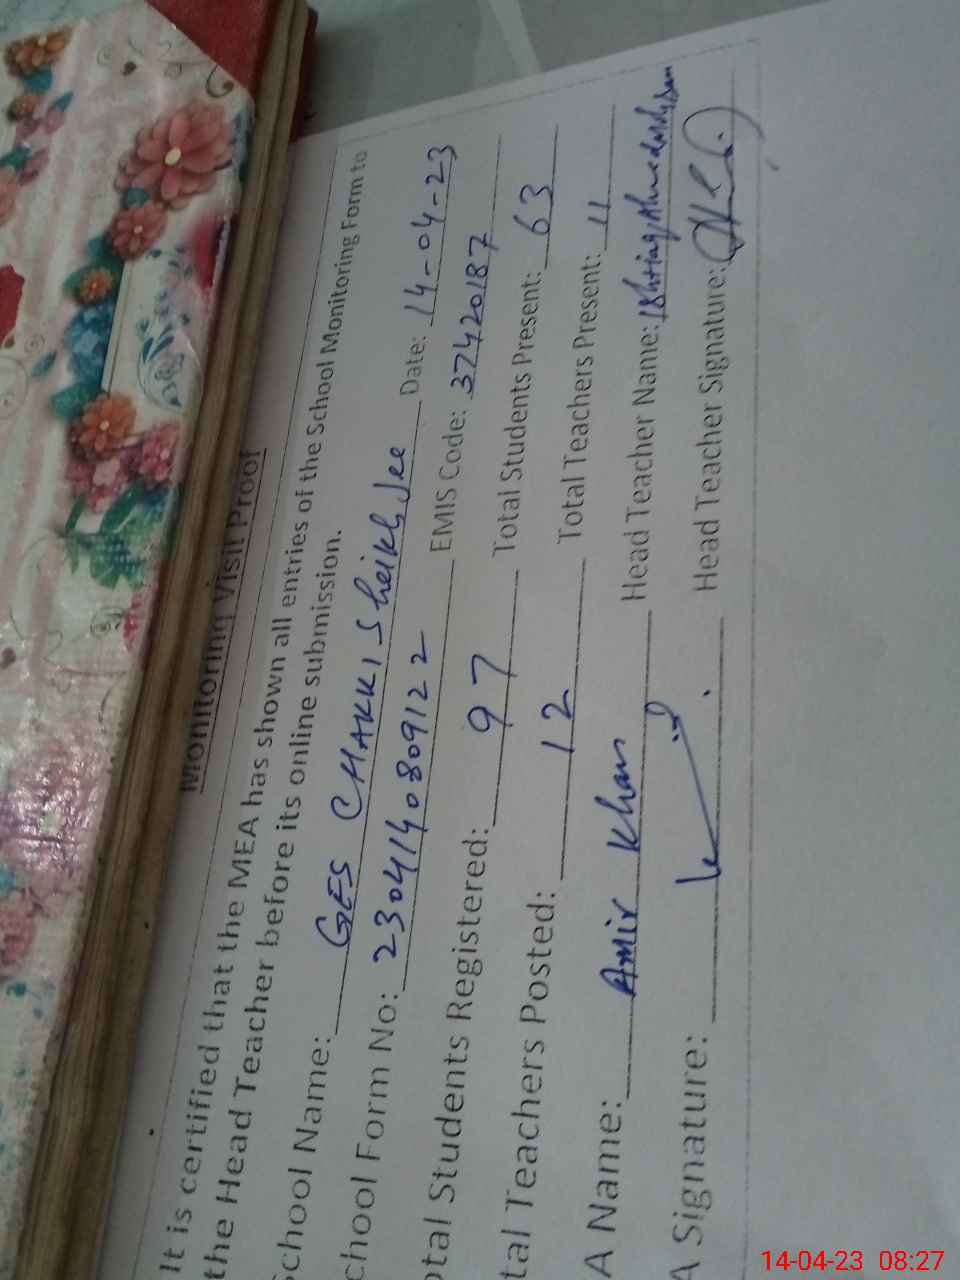 Monitoring Visit Proof
It is certified that the MEA has shown all entries of the School Monitoring Form to
the Head Teacher before its online submission.
School Name: GES CHAKKI Sheikh Jee Date: 14-04-23
chool Form No: 23041408091 22 EMIS Code: 37420187
otal Students Registered: 97 Total Students Present: 63
tal Teachers Posted: 12 Total Teachers Present: 11
A Name: Amir Khan Head Teacher Name: Ishtiaq Ahmed
A Signature: Head Teacher Signature:
14-04-23 08:27